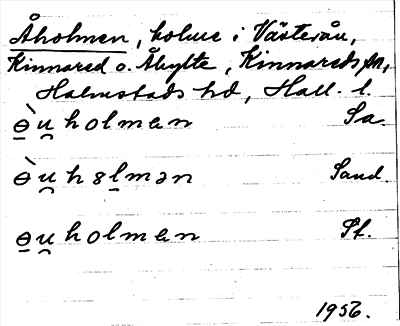 Åholmen, holme i Västerån,
Kinnared o. Åbylte, Kinnareds sn,
Halmstads hd, Hall. l.
ɵ̀u̯holmen Sa.
ɵ̀u̯hɞlmən Sand.
ɵu̯holmen Sf.
1956.